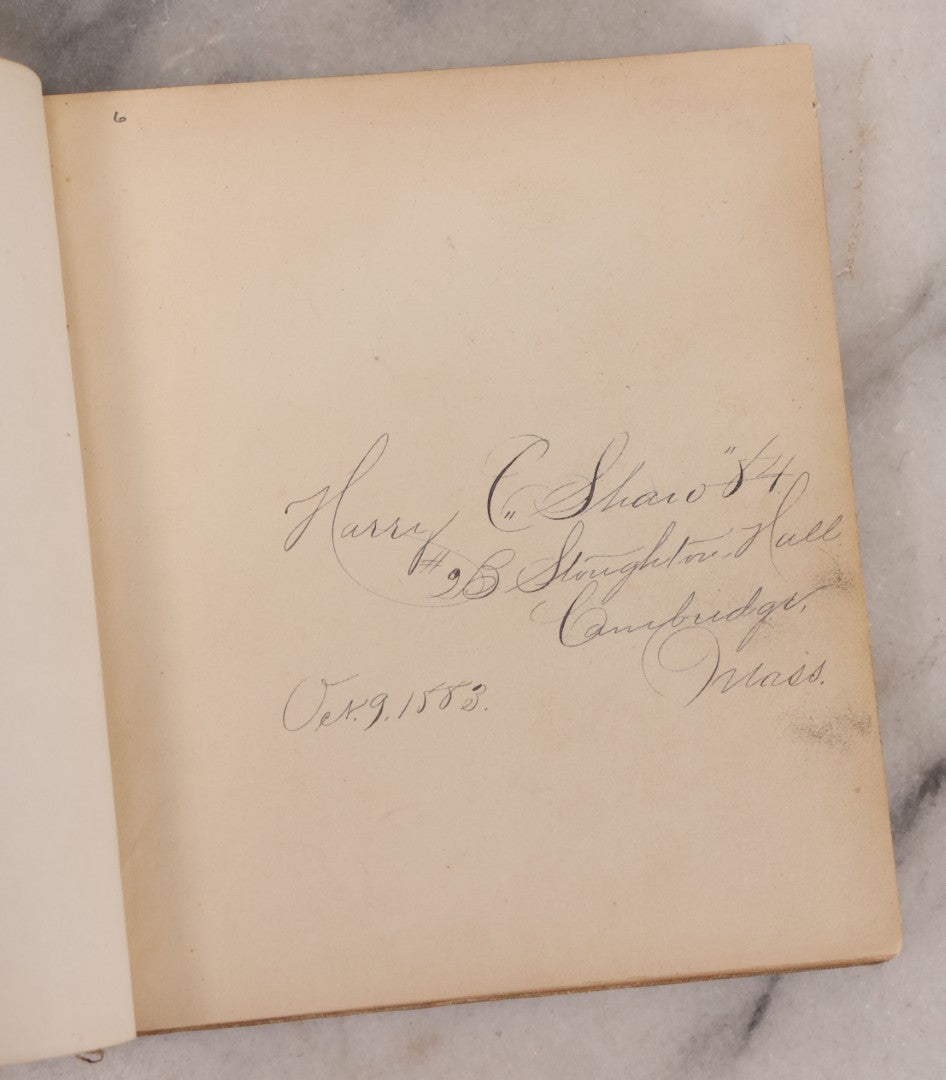 6
Harry C. Shaw "84.
#2B Stoughton Hall
Cambridge,
Mass.
Oct. 9, 1883.